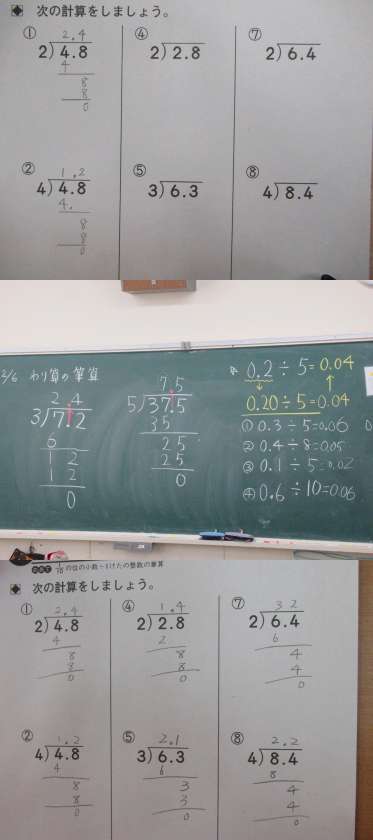 次の計算をしましょう。
① 2.4
2)4.8
4
8
8
0
④
2)2.8
⑦
2)6.4
② 1.2
4)4.8
4.
8
8
0
⑤
3)6.3
⑧
4)8.4
2/6 わり算の筆算
2.4
3)7.2
6
1 2
1 2
0
7.5
5)37.5
35
2 5
2 5
0
0.2÷5=0.04
0.20÷5=0.04
① 0.3÷5=0.06
② 0.4÷8=0.05
③ 0.1÷5=0.02
④ 0.6÷10=0.06
の位の小数÷1けたの整数の筆算
次の計算をしましょう。
① 2.4
2)4.8
4
8
8
0
④ 1.4
2)2.8
2
8
8
0
⑦ 3 2
2)6.4
6
4
4
0
② 1.2
4)4.8
4
8
8
0
⑤ 2.1
3)6.3
6
3
3
0
⑧ 2.2
4)8.4
8
4
4
0